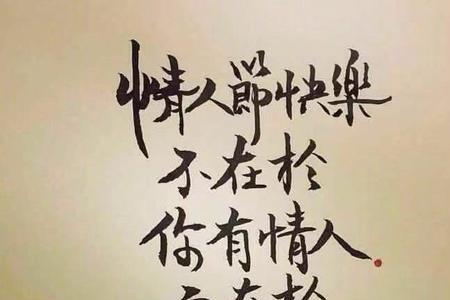 情人節快樂
不在於
你有情人